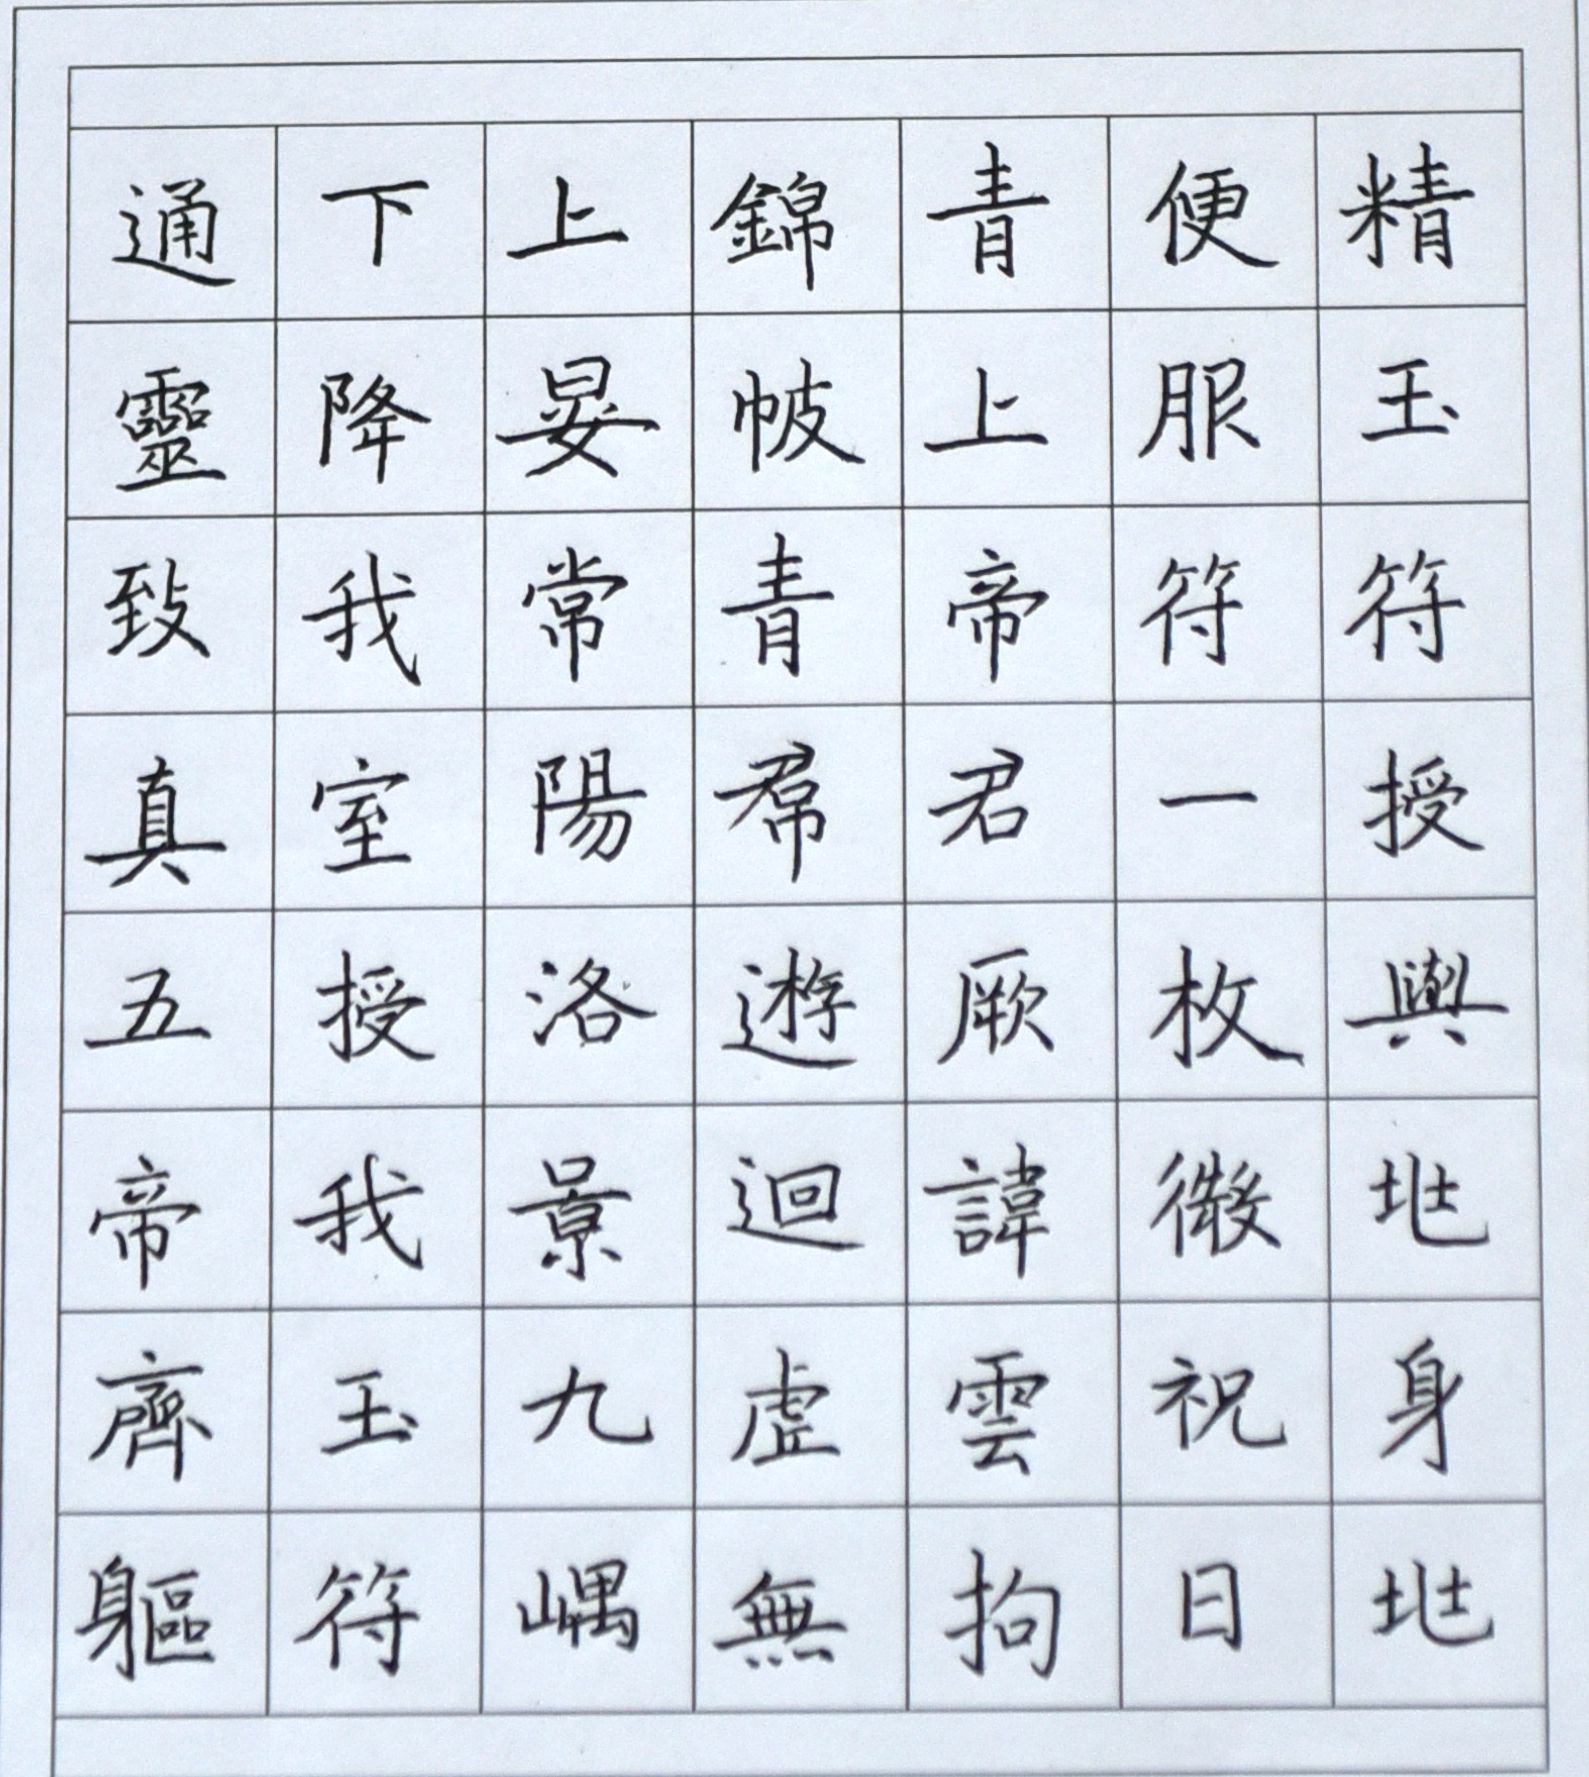 精玉符授與兆身兆
便服符一枚微祝曰
青上帝君厥諱雲拘
錦帔青帬遊迴虛無
上晏常陽洛景九嵎
下降我室授我玉符
通靈致真五帝齊軀